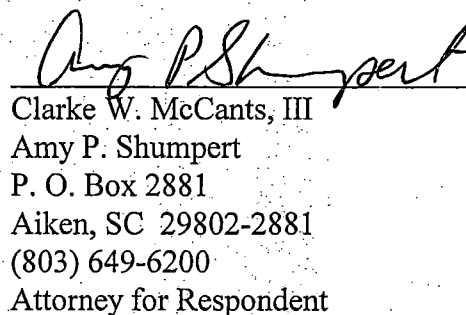 Amy P Shumpert
Clarke W. McCants, III
Amy P. Shumpert
P. O. Box 2881
Aiken, SC 29802-2881
(803) 649-6200
Attorney for Respondent